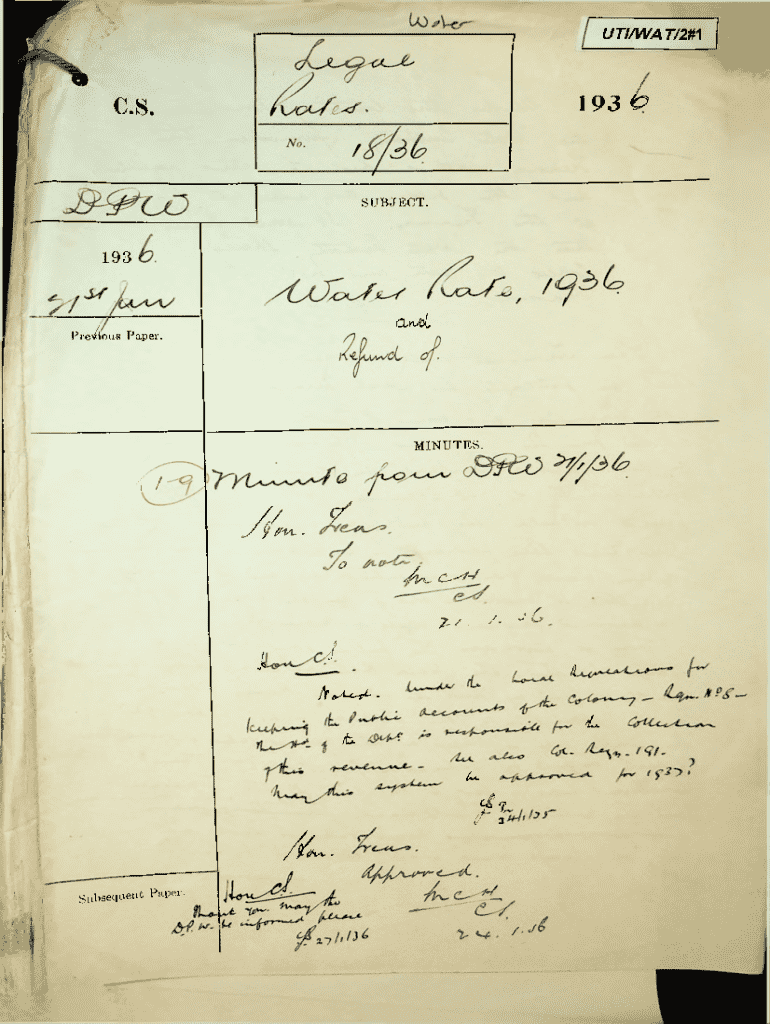 Water
UTI/WAT/2#1
C.S.
Legal
Rates.
No. 18/36
1936
DPW
SUBJECT.
1936.
21st Jan
Previous Paper.
Water Rate, 1936
and
Refund of.
MINUTES.
1-9 Minute from DPW 21/1/36
Hon. Treas.
To note
McH
CS.
21.1.36.
Hon CS.
Noted. Under the Local Regulations for
keeping the Public Accounts of the Colony – Regn. No 8 –
the Hd of the Dept is responsible for the collection
of this revenue – See also Col. Regn. 191.
May this system be approved for 1937?
24/1/35
Hon. Treas.
Approved.
McH
CS.
24.1.36
Subsequent Paper.
Hon CS.
Thank you. May the
D.P.W. be informed please
27/1/36